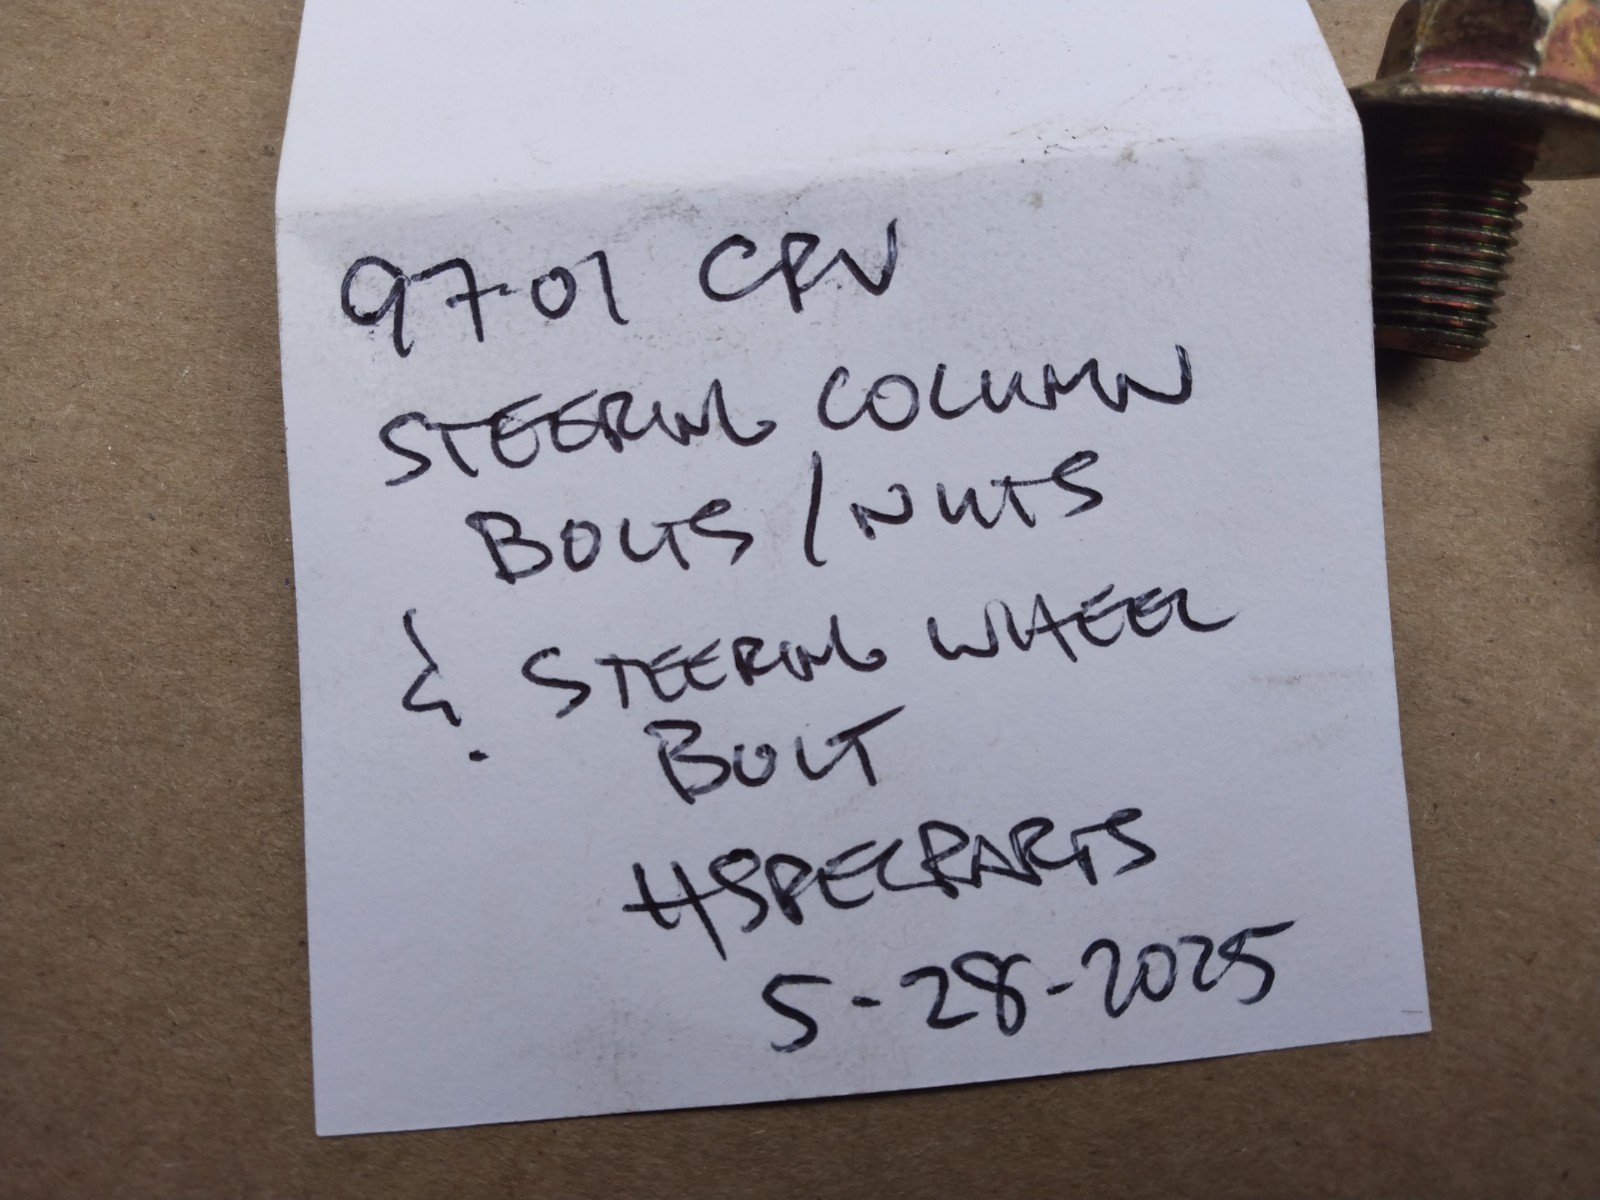 97-01 CRV
STEERING COLUMN
BOLTS / NUTS
& STEERING WHEEL
BOLT
HSPECPARTS
5-28-2025